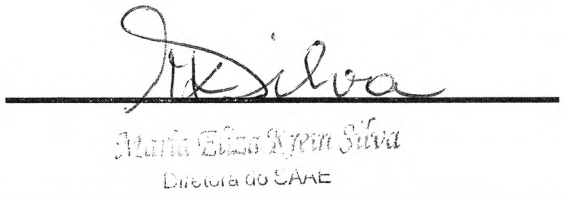 MKSilva
Maria Eliza Klein Silva
Diretora do SAAE